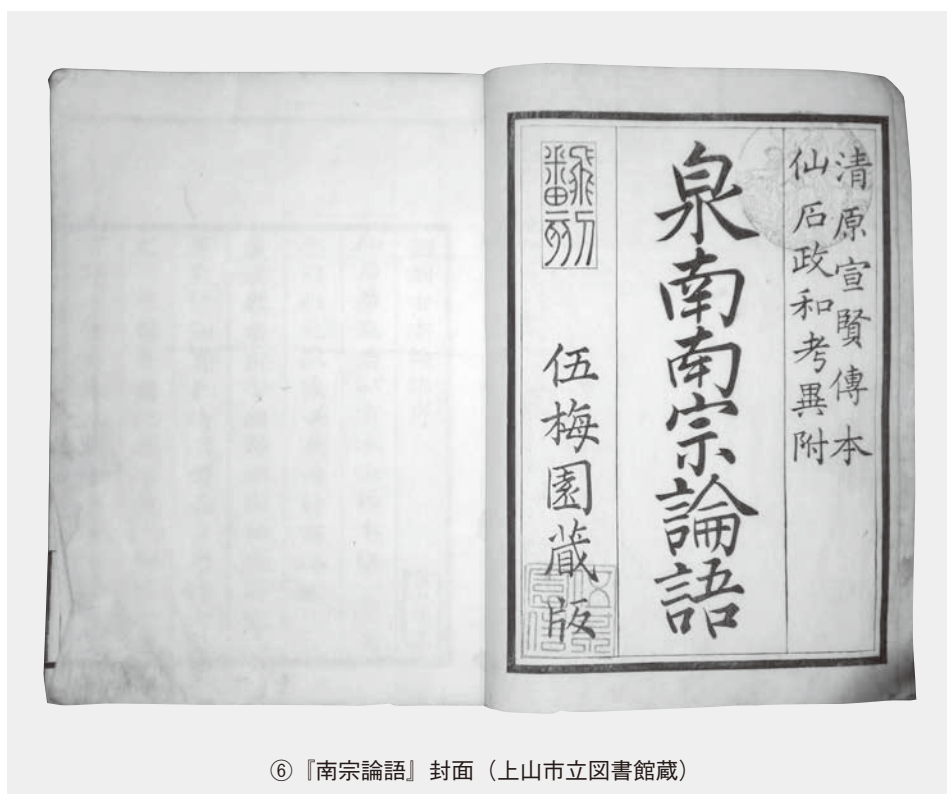 清原宣賢傳本
仙石政和考異附
泉南南宗論語
翻刻
伍梅園蔵版
⑥『南宗論語』封面（上山市立図書館蔵）